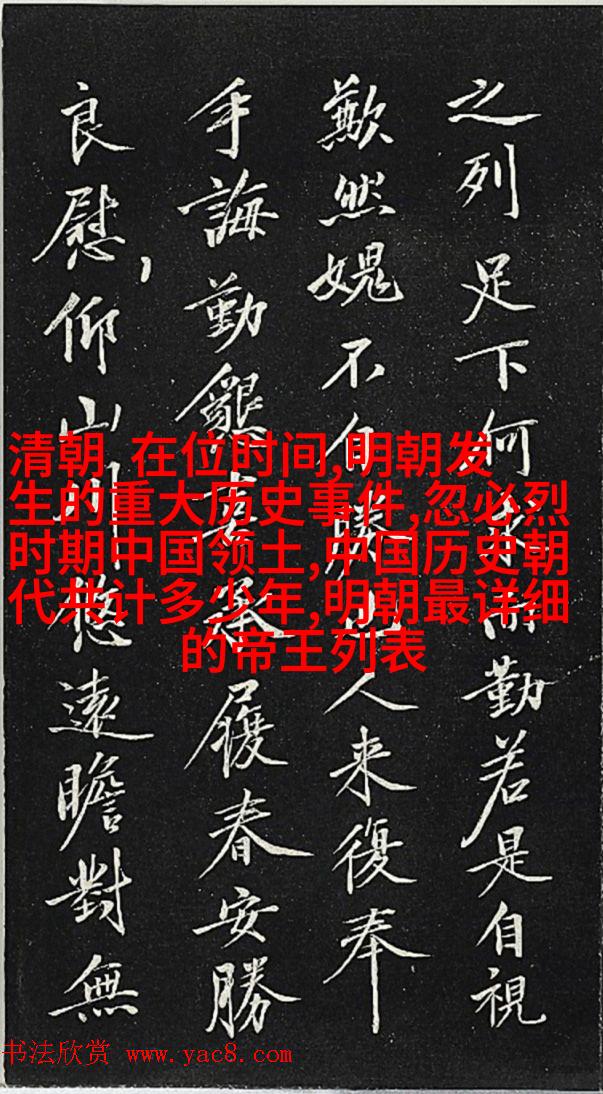 之列足下何求而勤若是自視
歉然媿不自勝人来復奉
手誨勤懇承履春安勝
良慰,仰山川悠遠瞻對無
清朝 在位时间,明朝发
生的重大历史事件,忽必烈
时期中国领土,中国历史朝
代共计多少年,明朝最详细
的帝王列表
书法欣赏 www.yac8.com